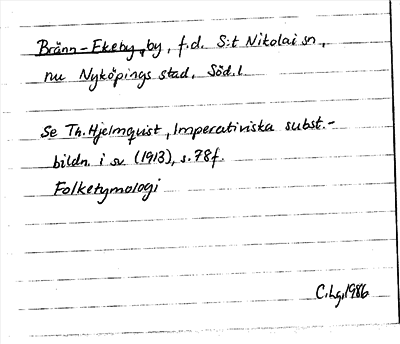 Bränn-Ekeby, by, f.d. S:t Nikolai sn,
nu Nyköpings stad, Söd.l.
Se Th. Hjelmquist, Imperativiska subst.-
bildn. i sv. (1913), s. 78 f.
Folketymologi
C. Lg. 1986